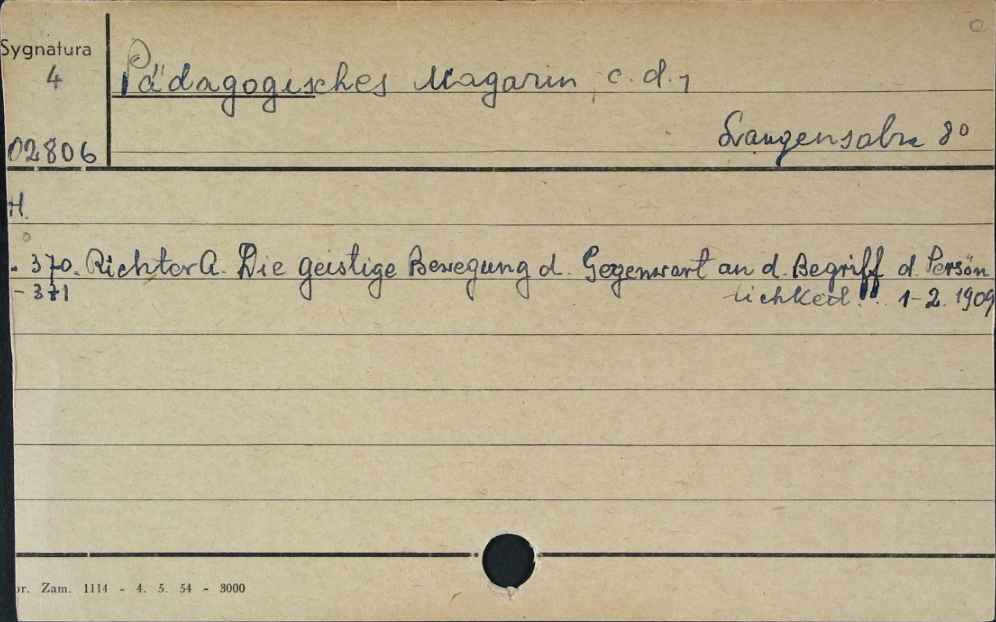 Sygnatura
4
02806
Pädagogisches Magazin, c.d.,
Langensalza 8°
H.
- 370. Richter A. Die geistige Bewegung d. Gegenwart an d. Begriff d. Persön
- 371
lichkeit... 1-2. 1909
Zam. 1114 - 4. 5. 54 - 3000